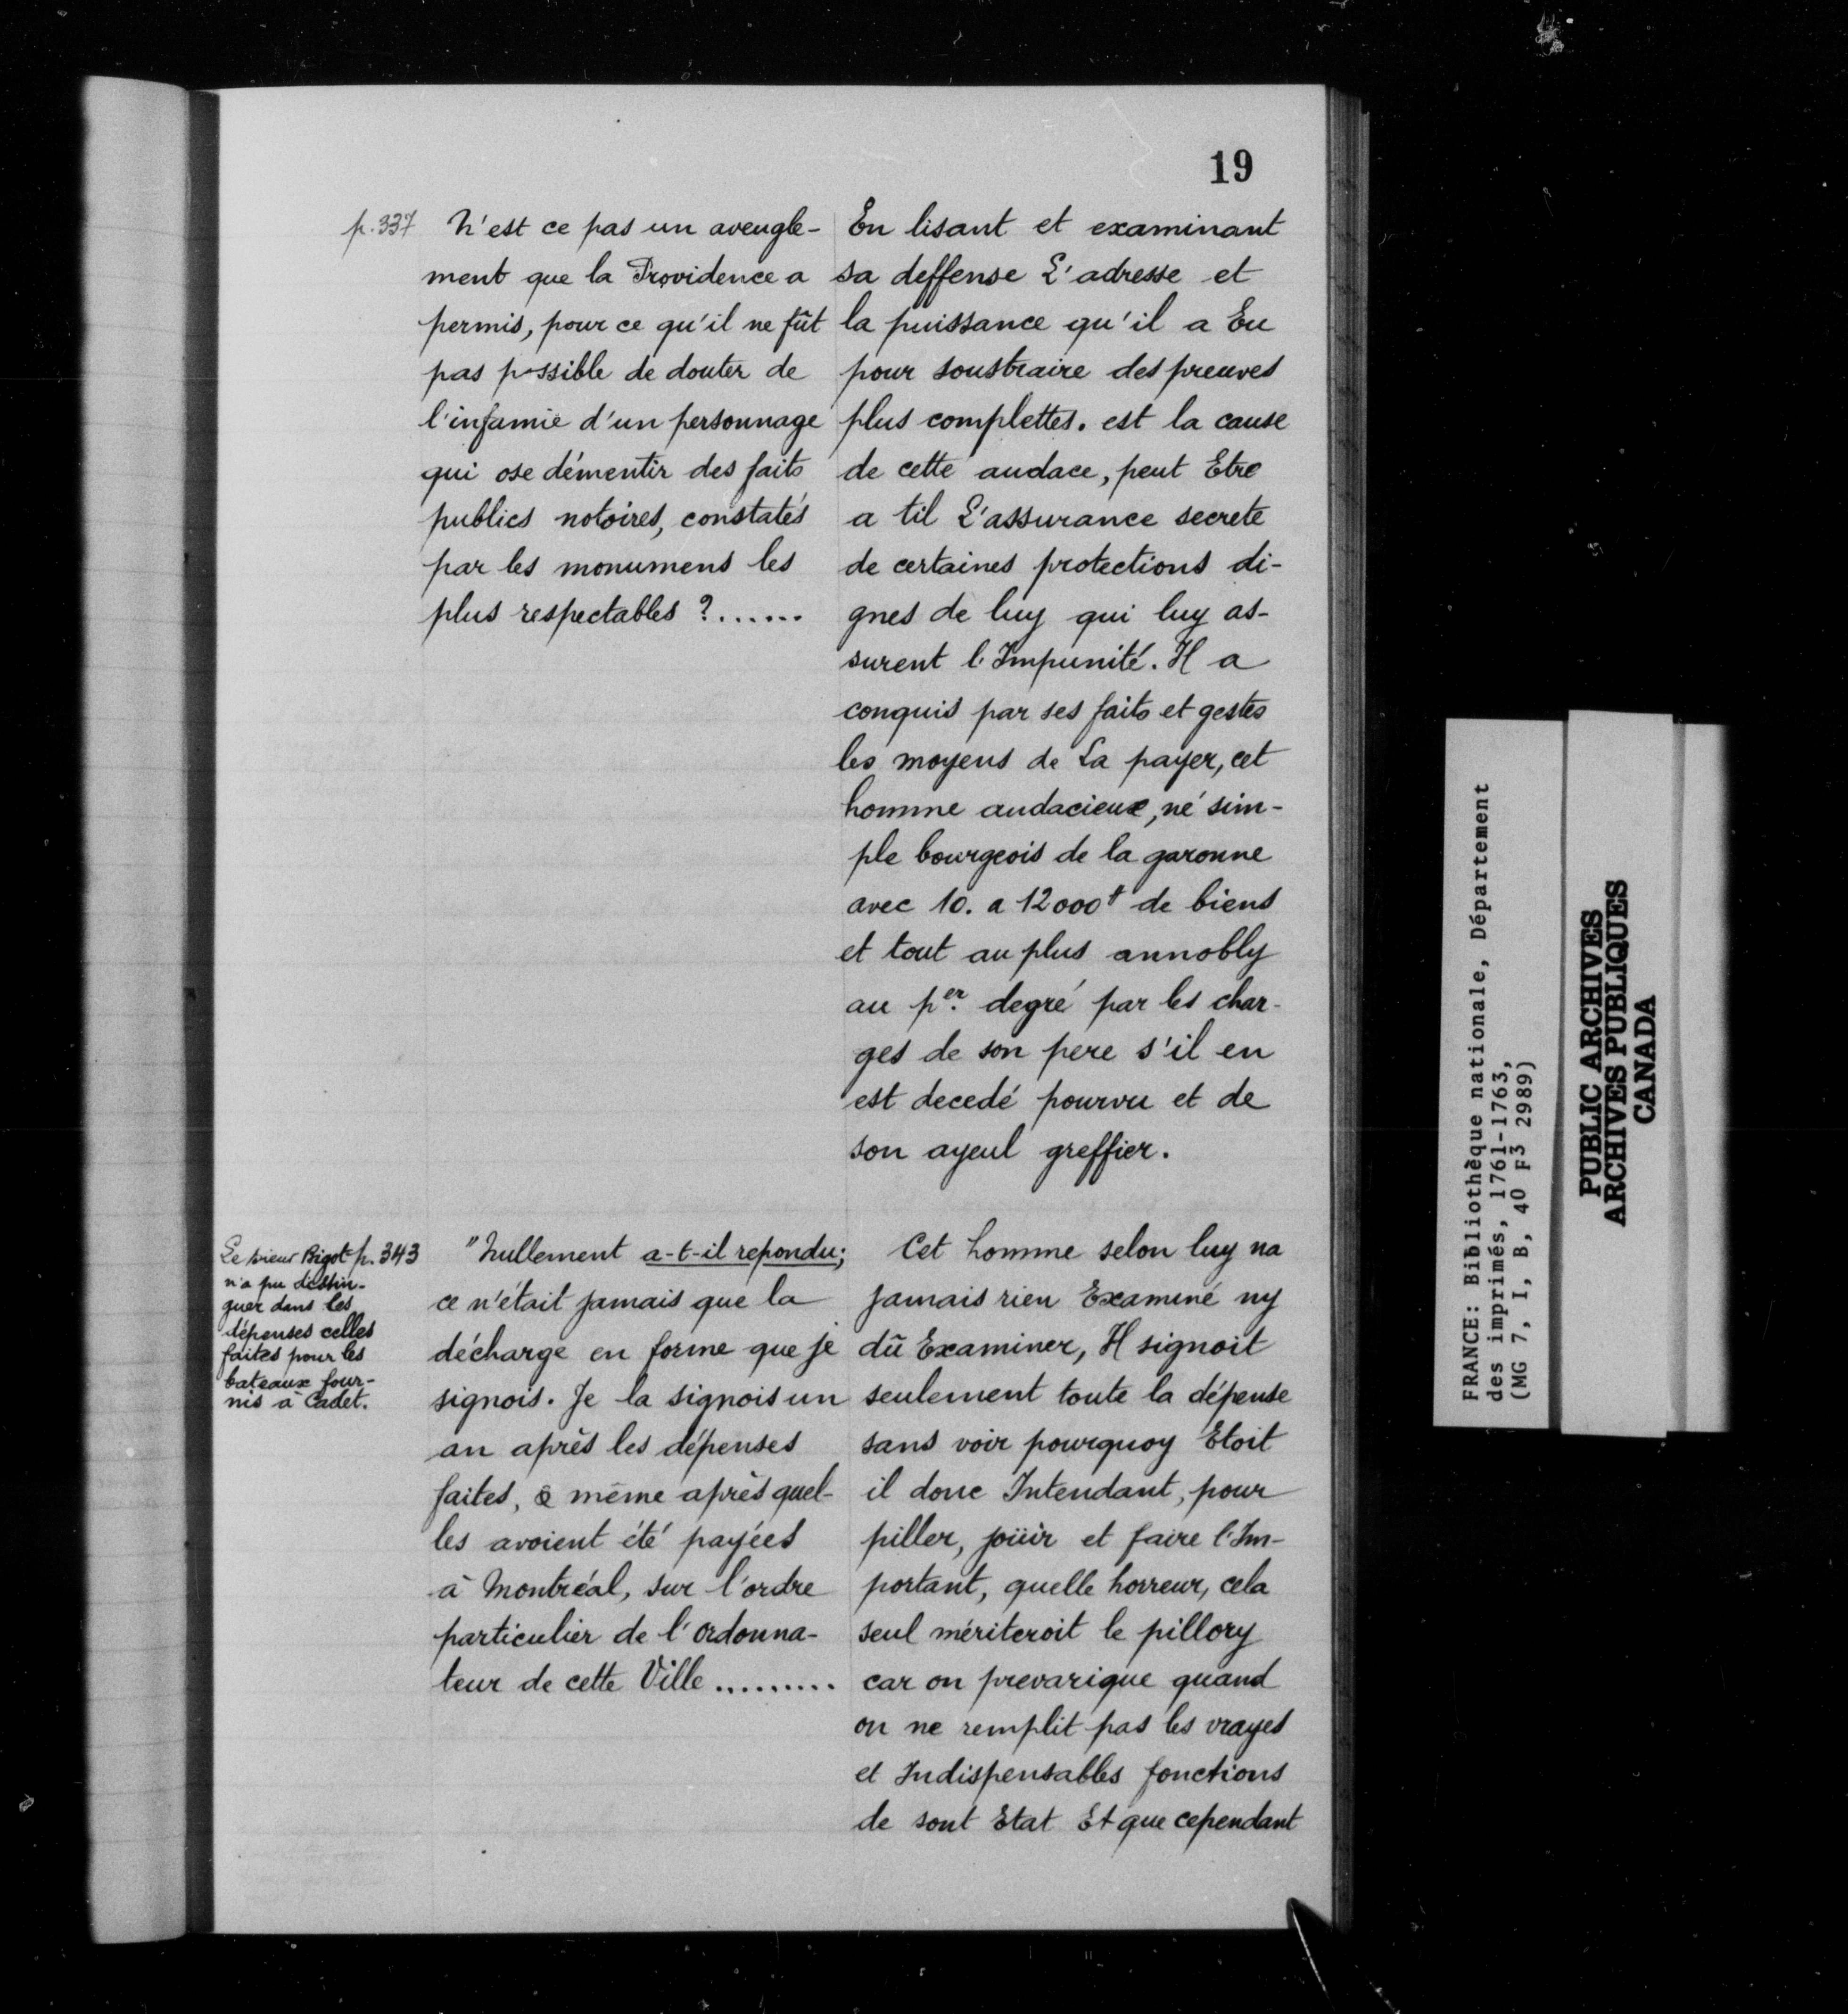 19
p. 337
N'est ce pas un aveugle-
ment que la Providence a
permis, pour ce qu'il ne fût
pas possible de douter de
l'infamie d'un personnage
qui ose démentir des faits
publics notoires, constatés
par les monumens les
plus respectables ?......
En lisant et examinant
sa deffense L'adresse et
la puissance qu'il a Eu
pour soustraire des preuves
plus complettes. est la cause
de cette audace, peut Etre
a til L'assurance secrete
de certaines protections di-
gnes de luy qui luy as-
surent l'Impunité. Il a
conquis par ses faits et gestes
les moyens de La payer, cet
homme audacieux, né sim-
ple bourgeois de la garonne
avec 10. a 12000t de biens
et tout au plus annobly
au per. degré par les char-
ges de son pere s'il en
est decedé pourvu et de
son ayeul greffier.
Le sieur Bigot p. 343
n'a pu distin-
guer dans les
dépenses celles
faites pour les
bateaux four-
nis à Cadet.
"Nullement a-t-il repondu;
ce n'était jamais que la
décharge en forme que je
signois. Je la signois un
an après les dépenses
faites, & même après quel-
les avoient été payées
à Montréal, sur l'ordre
particulier de l'ordonna-
teur de cette Ville .........
Cet homme selon luy na
jamais rien Examiné ny
dû Examiner, Il signoit
seulement toute la dépense
sans voir pourquoy Etoit
il donc Intendant, pour
piller, joüir et faire l'Im-
portant, quelle horreur, cela
seul mériteroit le pillory
car on prevarique quand
on ne remplit pas les vrayes
et Indispensables fonctions
de sont Etat Et que cependant
FRANCE: Bibliothèque nationale, Département
des imprimés, 1761-1763,
(MG 7, I, B, 40 F3 2989)
PUBLIC ARCHIVES
ARCHIVES PUBLIQUES
CANADA